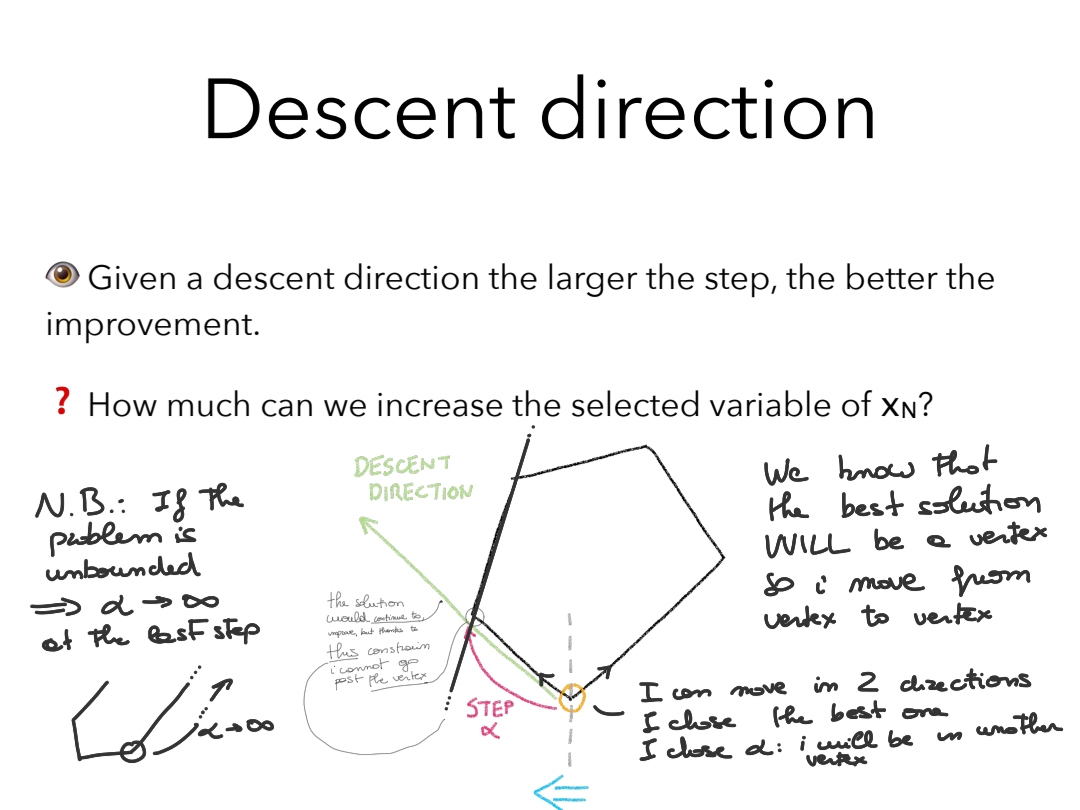 Descent direction
👁 Given a descent direction the larger the step, the better the
improvement.
❓ How much can we increase the selected variable of xN?
N.B.: If the
problem is
unbounded
⟹ α → ∞
at the last step
α→∞
DESCENT
DIRECTION
the solution
would continue to
improve, but thanks to
this constrain
i cannot go
past the vertex
STEP
α
We know that
the best solution
WILL be a vertex
so i move from
vertex to vertex
I can move in 2 directions
I chose the best one
I chose α: i will be in another
vertex